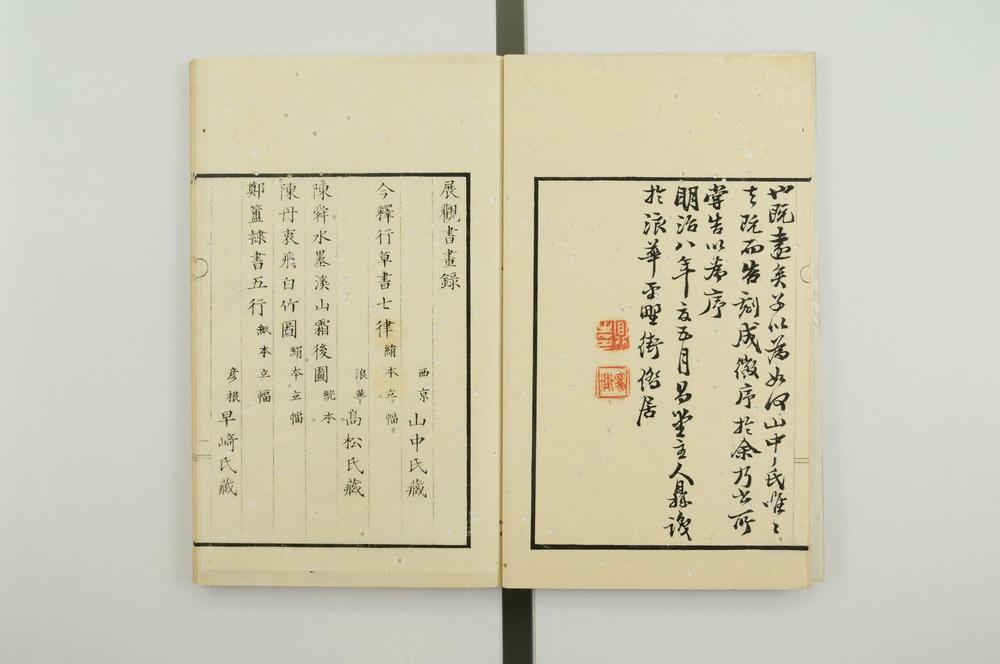 也既盡矣予以為如何山中氏唯〻
去既而告刻成徵序於余乃書所
嘗告以為序
明治八年五月 主人
於浪華平野街僑居
展觀書畫錄
西京 山中氏藏
今釋行草書七律 絹本立幅
浪華 髙松氏藏
陳舜水墨溪山霜後圖 絖本
陳丹衷飛白竹圖 絹本立幅
鄭簠隸書五行 紙本立幅
彦根 早﨑氏藏